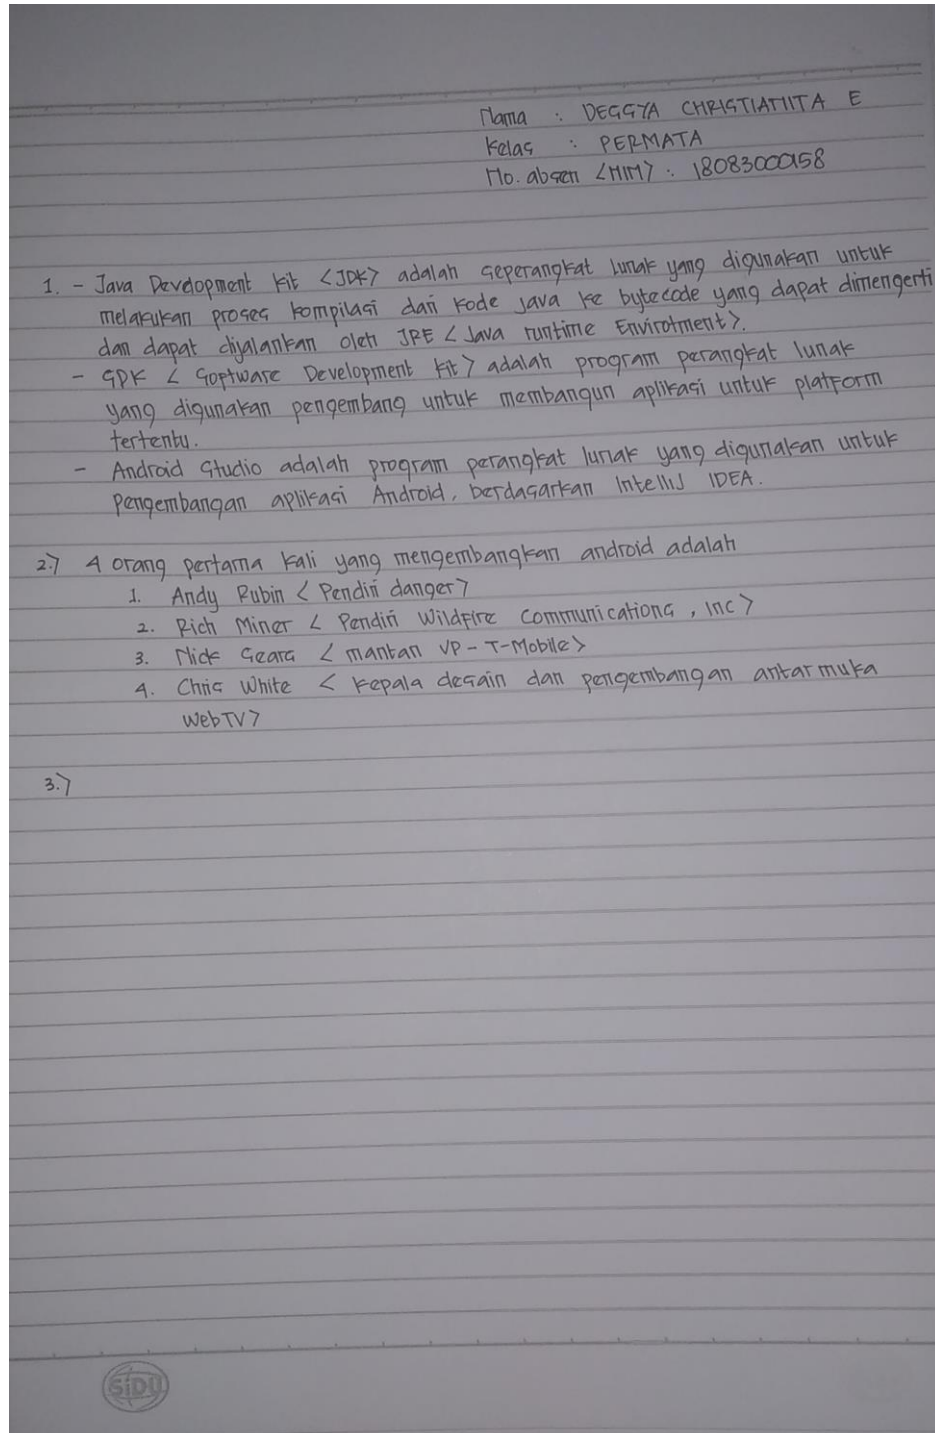 Nama : DESSYA CHRISTIANITA E
Kelas : PERMATA
No. absen <NIM> : 18083000158
1. - Java Development Kit <JDK> adalah seperangkat lunak yang digunakan untuk
melakukan proses kompilasi dari kode java ke bytecode yang dapat dimengerti
dan dapat dijalankan oleh JRE < Java runtime Envirotment>.
- SDK < Software Development Kit> adalah program perangkat lunak
yang digunakan pengembang untuk membangun aplikasi untuk platform
tertentu.
- Android Studio adalah program perangkat lunak yang digunakan untuk
pengembangan aplikasi Android, berdasarkan IntelliJ IDEA.
2.> 4 orang pertama kali yang mengembangkan android adalah
1. Andy Rubin < Pendiri danger>
2. Rich Miner < Pendiri Wildfire Communications, Inc>
3. Nick Sears < mantan VP - T-Mobile>
4. Chris White < kepala desain dan pengembangan antarmuka
WebTV>
3.>
SiDU